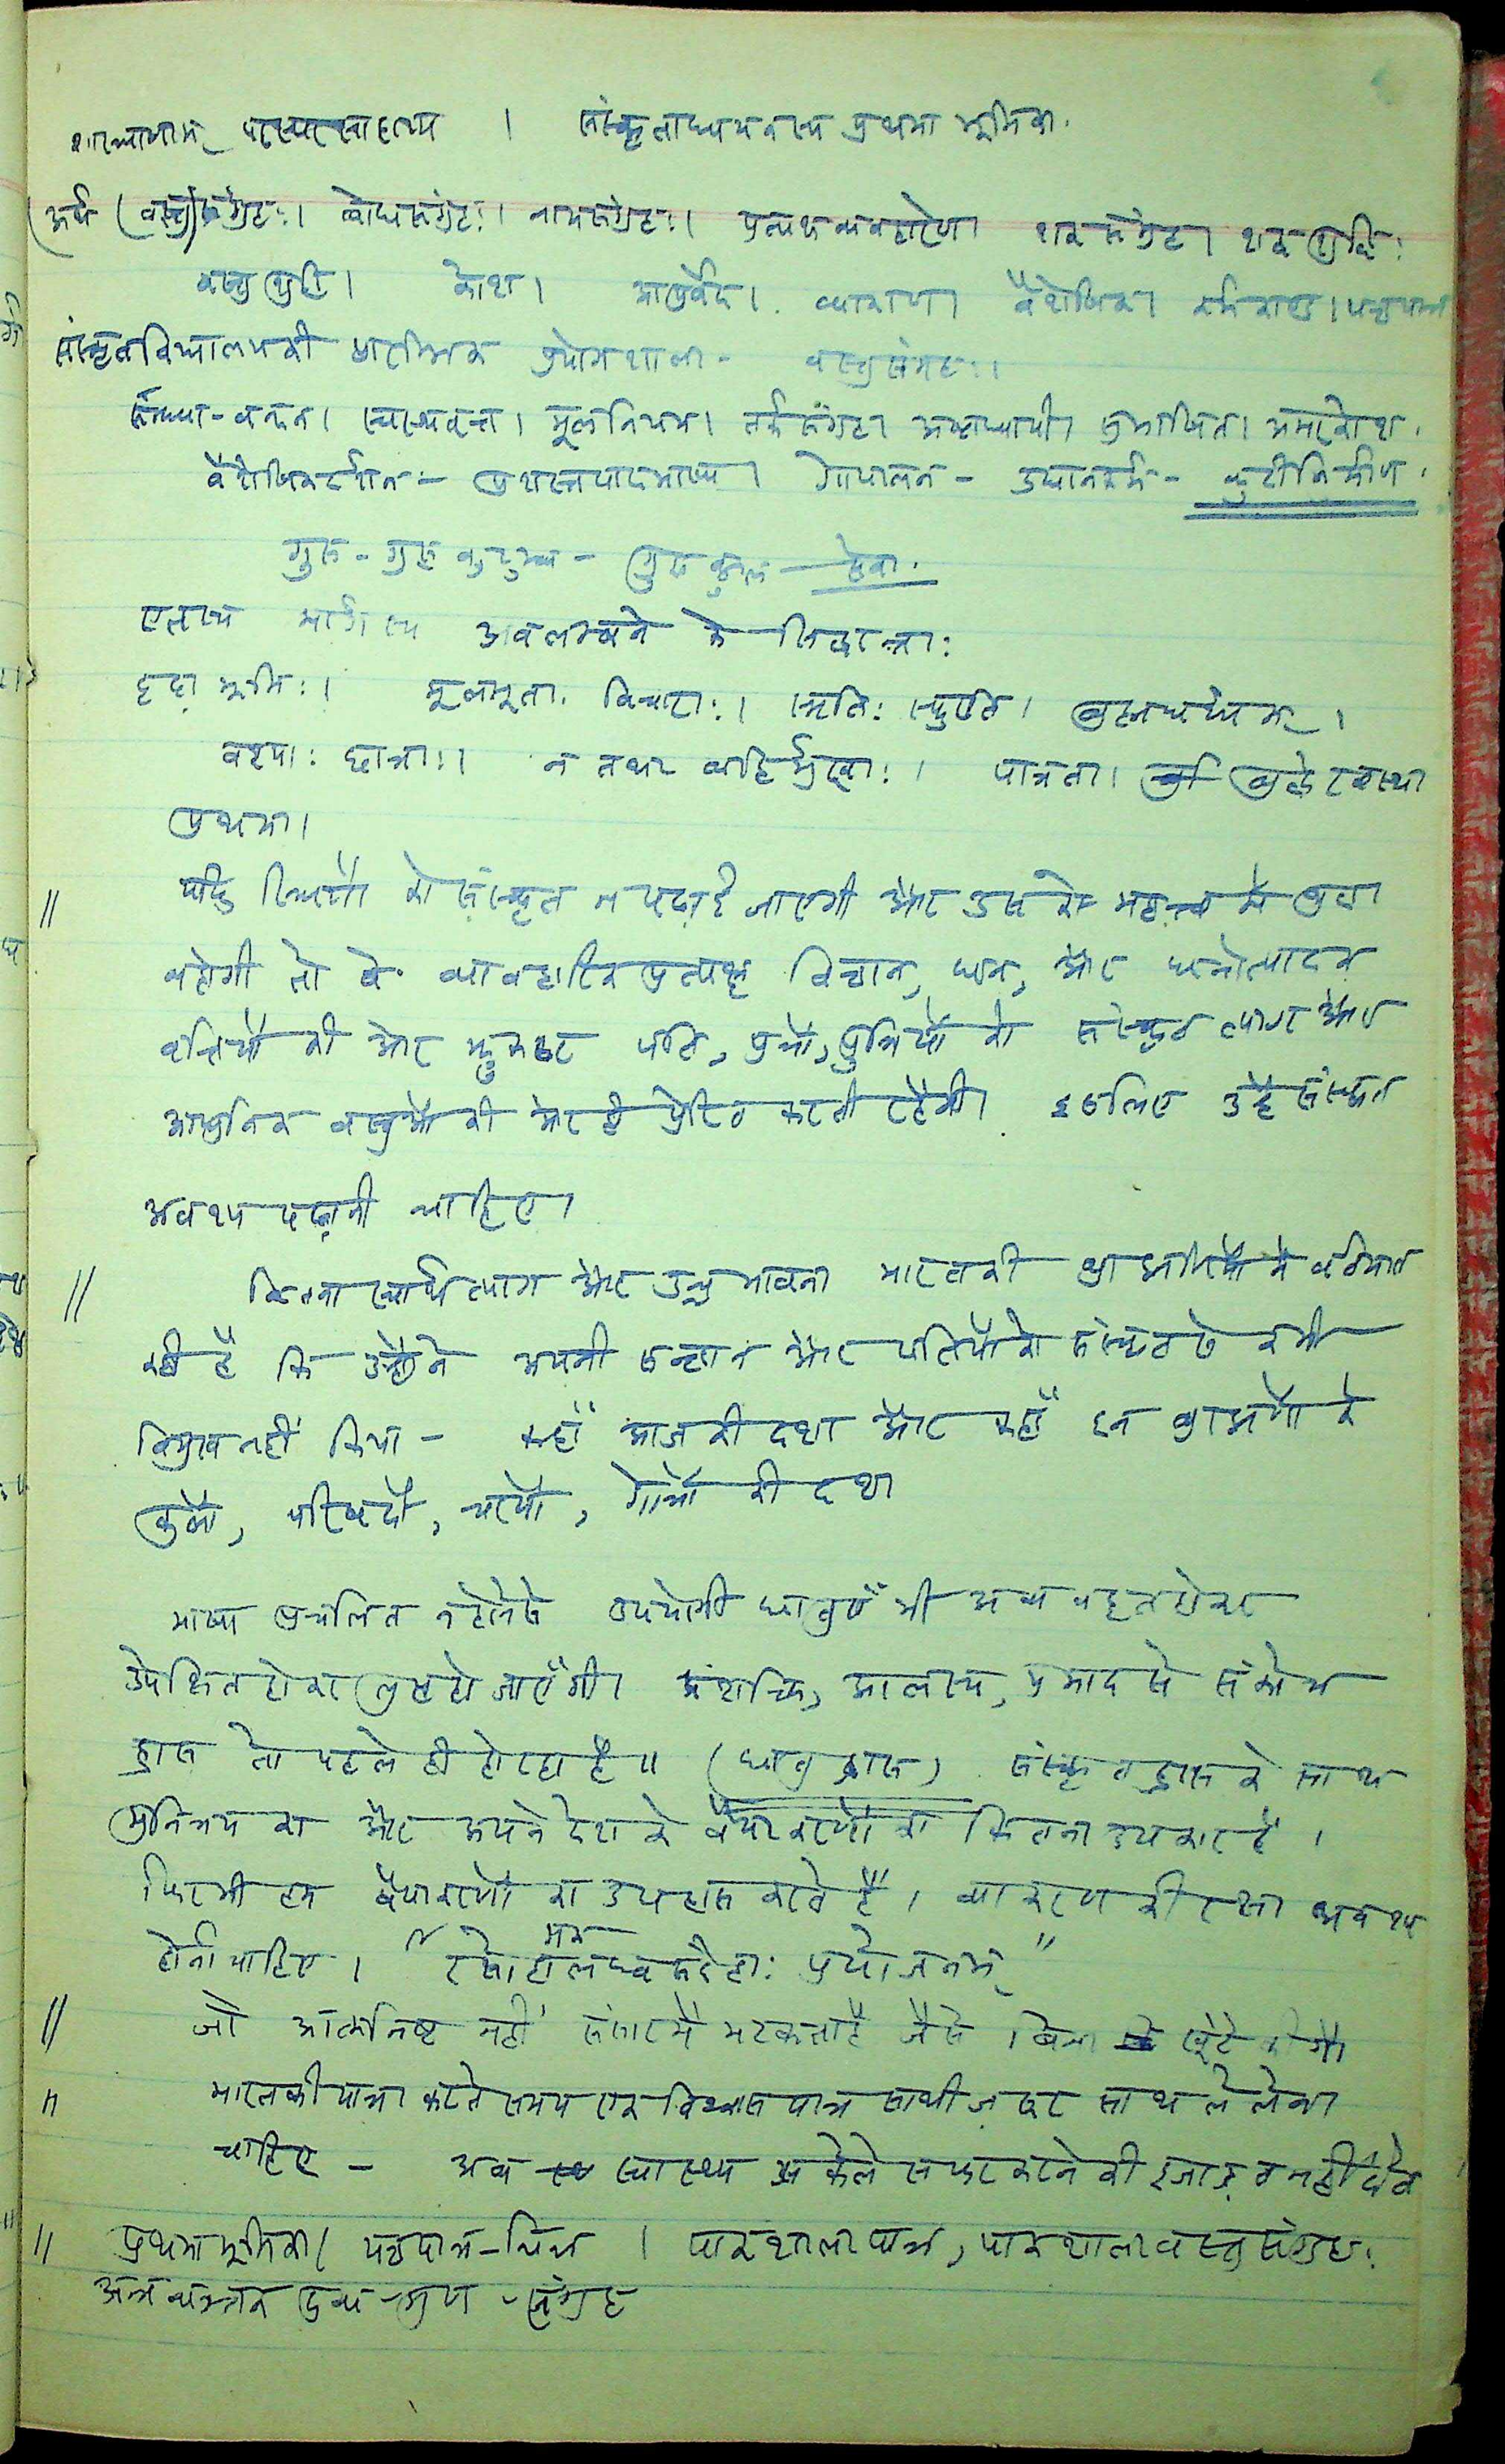 शास्त्राणाम् परस्परसाहाय्य । संस्कृताध्ययनस्य प्रथमा भूमिका.
(अर्थ (वस्तु)संग्रहः। बोधसंग्रहः। नामसंग्रहः। प्रत्यक्षव्यवहारेण। शब्दसंग्रह। शब्दशुद्धिः
वस्तुशुद्धि। कोश। आयुर्वेद। व्याकरण। वैशेषिक। कर्मकाण्ड। पञ्चपात्र
संस्कृतविद्यालयकी प्रारम्भिक प्रयोगशाला- वस्तुसंग्रहः।
सन्ध्या-वन्दन। स्वस्थवृत्त। मूलनियम। तर्कसंग्रह। अष्टाध्यायी। सुभाषित। अमरकोश.
वैशेषिकदर्शन - प्रशस्तपादभाष्य। गोपालन - उद्यानकर्म - कुटीनिर्माण.
गुरु - गुरुकुटुम्ब - गुरुकुल - सेवा.
एतस्य मार्गस्य अवलम्बने के सिद्धान्ताः
दृढा भूमिः। मूलभूता. विचाराः। स्मृतिः स्फुरति। ब्रह्मचर्यम्।
वश्याः छात्राः। न तथा बहिर्मुखाः। पात्रता। बुद्धेरवस्था
प्रथमा।
// यदि स्त्रियों को संस्कृत न पढ़ाई जाएगी और उस के महत्त्व में श्रद्धा
न होगी तो वे व्यावहारिक प्रत्यक्ष विज्ञान, धन, और धनोत्पादक
वृत्तियों की ओर झुककर पति, पुत्रों, पुत्रियों को संस्कृत त्यागकर और
आधुनिक वस्तुओं की ओर ही प्रेरित करती रहेंगी। इसलिए उन्हें संस्कृत
अवश्य पढ़ानी चाहिए।
// कितना स्वार्थत्याग और उच्च भावना भारतकी ब्राह्मणियों में वर्तमान
रही है कि उन्होंने अपनी सन्तान और पतियों को संस्कृत से कभी
विमुख नहीं किया - कहाँ आज की दशा और कहाँ इन ब्राह्मणों के
कुलों, परिषदों, चरणों, गोत्रों की दशा
भाषा प्रचलित न होनेसे उपयोगी धातुएँ भी अव्यवहृत होकर
उपेक्षित होकर लुप्त हो जाएँगी। अशक्ति, आलस्य, प्रमाद से संकोच
ह्रास तो पहले ही हो रहा है॥ (धातु ह्रास) संस्कृत ह्रास के साथ
मुनित्रय का और अपने देश के वैयाकरणों का कितना उपकार है।
फिर भी हम वैयाकरणों का उपहास करते हैं। व्याकरण की रक्षा अवश्य
होनी चाहिए। "रक्षोहागमलघ्वसंदेहाः प्रयोजनम्"
// जो आत्मनिष्ठ नहीं संसारमें भटकता है जैसे बिना खूंटे की गौ
" भारतकी यात्रा करते समय एक विश्वासपात्र साथी ज़रूर साथ ले लेना
चाहिए - अब स्वास्थ्य अकेले सफर करने की इजाज़त नहीं देता
" प्रथमा भूमिका। पञ्चपात्र-चित्र । पाकशालापात्र, पाकशालावस्तुसंग्रहः
द्रव्य-गुण-संग्रह